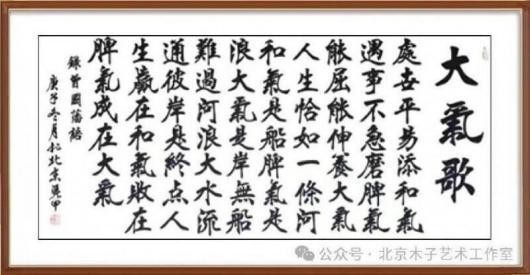 大氣歌
處世平易添和氣
遇事不急磨脾氣
能屈能伸養大氣
人生恰如一條河
和氣是船脾氣是
浪大氣是岸無船
難過河浪大水流
通彼岸是終点人
生贏在和氣敗在
脾氣成在大氣
錄曾國藩語
庚子冬月於北京
公众号 · 北京木子艺术工作室